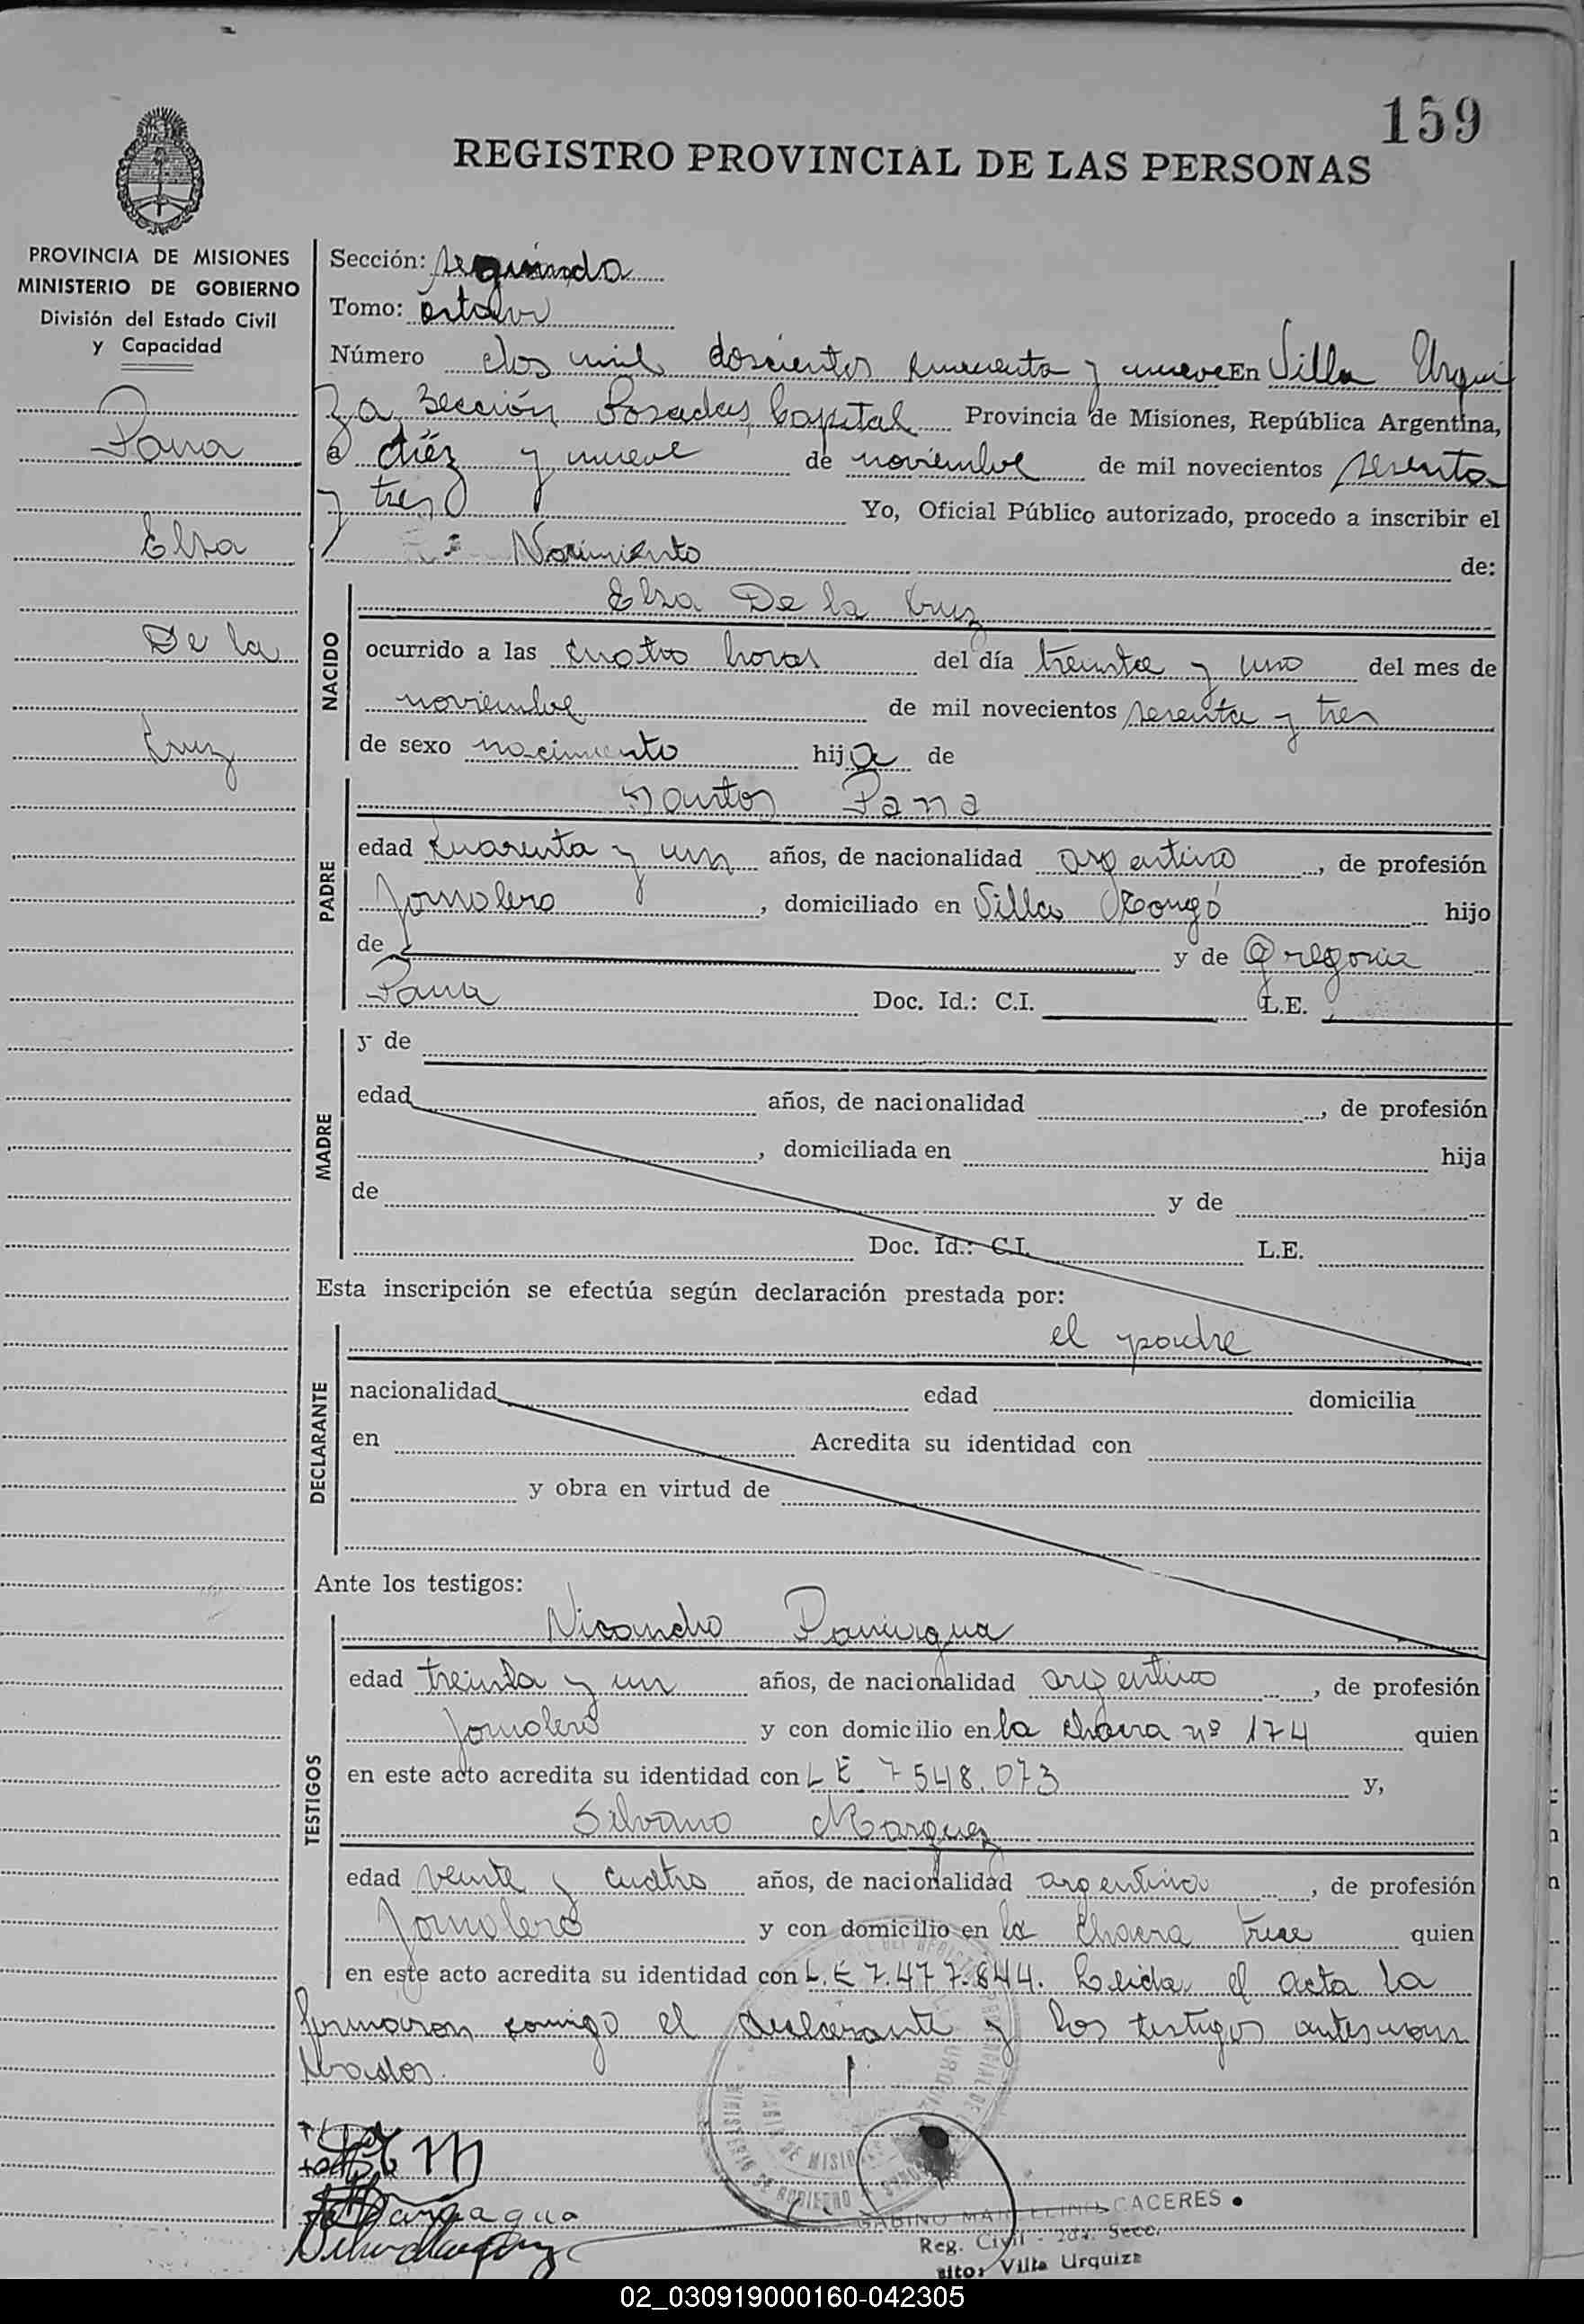 159
REGISTRO PROVINCIAL DE LAS PERSONAS
PROVINCIA DE MISIONES
MINISTERIO DE GOBIERNO
División del Estado Civil
y Capacidad
Pana
Elsa
De la
Kruz
Sección: segunda
Tomo: octavo
Número dos mil doscientos y nueve En Villa Urqui
za Sección Posadas, Capital Provincia de Misiones, República Argentina,
a diéz y nueve de noviembre de mil novecientos sesenta
y tres Yo, Oficial Público autorizado, procedo a inscribir el
Nacimiento de:
NACIDO
Elsa De la Kruz
ocurrido a las cuatro horas del día treinta y uno del mes de
noviembre de mil novecientos sesenta y tres
de sexo nacimiento hija de
PADRE
Santos Pana
edad kuarenta y un años, de nacionalidad argentino, de profesión
Jornalero, domiciliado en Villa hijo
de y de Gregoria
Pana Doc. Id.: C.I. L.E.
MADRE
y de
edad años, de nacionalidad , de profesión
, domiciliada en hija
de y de
Doc. Id.: C.I. L.E.
Esta inscripción se efectúa según declaración prestada por:
DECLARANTE
el padre
nacionalidad edad domicilia
en Acredita su identidad con
y obra en virtud de
Ante los testigos:
TESTIGOS
Nicandro
edad treinta y un años, de nacionalidad argentino, de profesión
Jornalero y con domicilio en la chacra nº 174 quien
en este acto acredita su identidad con L E 7548.073 y,
Silvano Marquez
edad veinte y cuatro años, de nacionalidad argentino, de profesión
Jornalero y con domicilio en la Chacra trece quien
en este acto acredita su identidad con L.E 7.477.844. Leida el acta la
firmaron comigo el declarante y los testigos antes nom
brados.
GABINO MARCELINO CACERES
Reg. Civil - 2da. Secc.
sito: Villa Urquiza
02_030919000160-042305